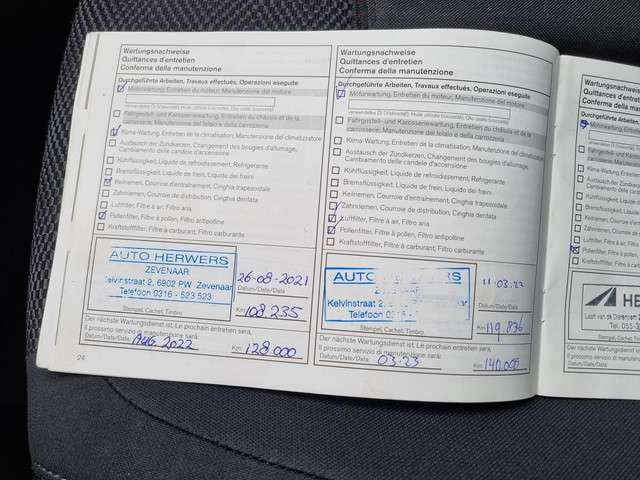 Wartungsnachweise
Quittances d'entretien
Conferma della manutenzione
Durchgeführte Arbeiten, Travaux effectués, Operazioni eseguite
Motorwartung, Entretien du moteur, Manutenzione del motore
Fahrgestell- und Karosseriewartung, Entretien du châssis et de la
carrosserie, Manutenzione del telaio e della carrozzeria
Klima-Wartung, Entretien de la climatisation, Manutenzione del climatizzatore
Austausch der Zündkerzen, Changement des bougies d'allumage,
Cambiamento delle candele d'accensione
Kühlflüssigkeit, Liquide de refroidissement, Refrigerante
Bremsflüssigkeit, Liquide de frein, Liquido dei freni
Keilriemen, Courroie d'entraînement, Cinghia trapezoidale
Zahnriemen, Courroie de distribution, Cinghia dentata
Luftfilter, Filtre à air, Filtro aria
Pollenfilter, Filtre à pollen, Filtro antipolline
Kraftstofffilter, Filtre à carburant, Filtro carburante
AUTO HERWERS
ZEVENAAR
Kelvinstraat 2, 6902 PW Zevenaar
Telefoon 0316 - 523 523
Stempel, Cachet, Timbro
26-08-2021
Datum/Date/Data
Km 108.235
Der nächste Wartungsdienst ist, Le prochain entretien sera,
Il prossimo servizio di manutenzione sarà:
Datum/Date/Data: Aug. 2022
Km: 128.000
24
Wartungsnachweise
Quittances d'entretien
Conferma della manutenzione
Durchgeführte Arbeiten, Travaux effectués, Operazioni eseguite
Motorwartung, Entretien du moteur, Manutenzione del motore
Fahrgestell- und Karosseriewartung, Entretien du châssis et de la
carrosserie, Manutenzione del telaio e della carrozzeria
Klima-Wartung, Entretien de la climatisation, Manutenzione del climatizzatore
Austausch der Zündkerzen, Changement des bougies d'allumage,
Cambiamento delle candele d'accensione
Kühlflüssigkeit, Liquide de refroidissement, Refrigerante
Bremsflüssigkeit, Liquide de frein, Liquido dei freni
Keilriemen, Courroie d'entraînement, Cinghia trapezoidale
Zahnriemen, Courroie de distribution, Cinghia dentata
Luftfilter, Filtre à air, Filtro aria
Pollenfilter, Filtre à pollen, Filtro antipolline
Kraftstofffilter, Filtre à carburant, Filtro carburante
AUTO HERWERS
Kelvinstraat 2
Telefoon 0316 -
Stempel, Cachet, Timbro
11-03-22
Datum/Date/Data
Km 119.836
Der nächste Wartungsdienst ist, Le prochain entretien sera,
Il prossimo servizio di manutenzione sarà:
Datum/Date/Data: 03-23
Km: 140.000
Wartungsnach
Quittances d'e
Conferma della
Durchgeführte Arb
Motorwartung, E
Fahrgestell- und
carrosserie, Ma
Klima-Wartung,
Austausch der
Cambiamento
Kühlflüssigkeit
Bremsflüssigke
Keilriemen, Co
Zahnriemen, C
Luftfilter, Filtre
Pollenfilter, Filt
Kraftstofffilter
HE
Tel. 055
Der nächste Wartung
Il prossimo servizio
Datum/Date/Data: